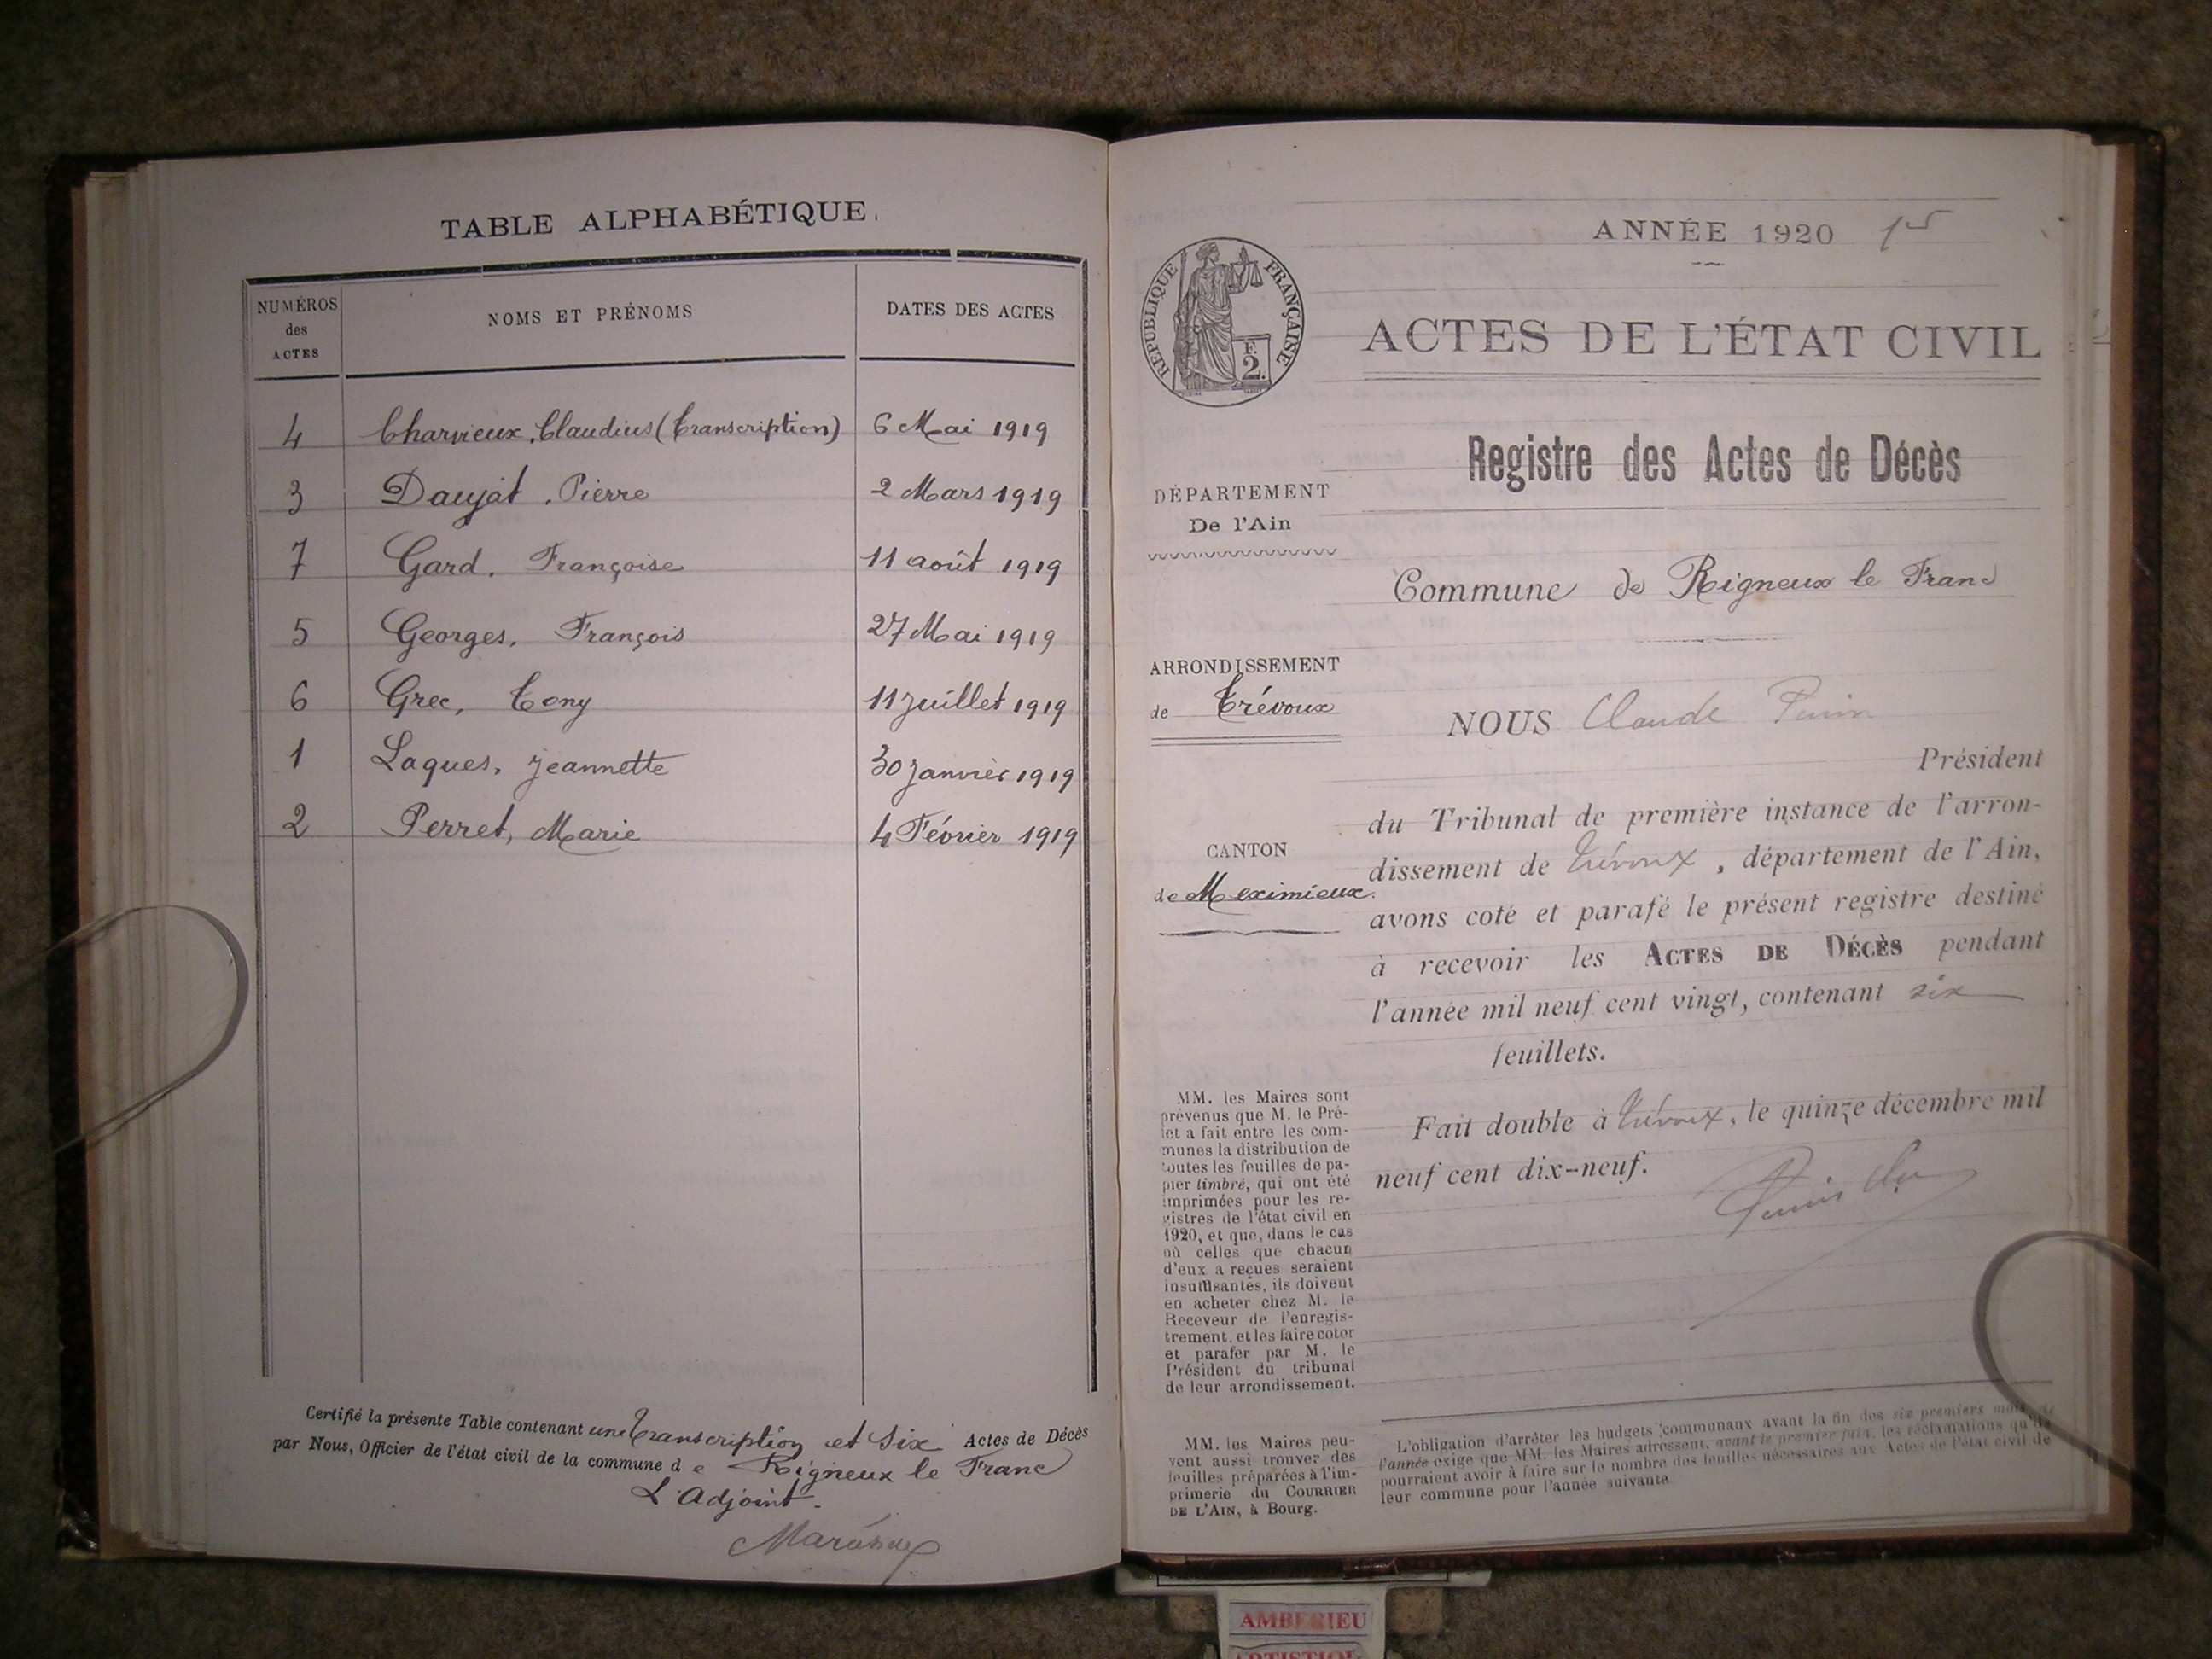 TABLE ALPHABÉTIQUE
NUMÉROS des ACTES NOMS ET PRÉNOMS DATES DES ACTES
4 Charvieux, Claudius (Transcription) 6 Mai 1919
3 Daujat, Pierre 2 Mars 1919
7 Gard, Françoise 11 août 1919
5 Georges, François 27 Mai 1919
6 Grec, Tony 11 Juillet 1919
1 Laques, Jeannette 30 Janvier 1919
2 Perret, Marie 4 Février 1919
Certifié la présente Table contenant une Transcription et Six Actes de Décès
par Nous, Officier de l'état civil de la commune de Rigneux le Franc
L'Adjoint
ANNÉE 1920
RÉPUBLIQUE FRANÇAISE
F.
2.
ACTES DE L'ÉTAT CIVIL
Registre des Actes de Décès
DÉPARTEMENT
De l'Ain
Commune de Rigneux le Franc
ARRONDISSEMENT
de Trévoux
CANTON
de Meximieux.
NOUS Claude
Président
du Tribunal de première instance de l'arron-
dissement de Trévoux, département de l'Ain,
avons coté et parafé le présent registre destiné
à recevoir les ACTES DE DÉCÈS pendant
l'année mil neuf cent vingt, contenant six
feuillets.
Fait double à Trévoux, le quinze décembre mil
neuf cent dix-neuf.
MM. les Maires sont
prévenus que M. le Pré-
fet a fait entre les com-
munes la distribution de
toutes les feuilles de pa-
pier timbré, qui ont été
imprimées pour les re-
gistres de l'état civil en
1920, et que, dans le cas
où celles que chacun
d'eux a reçues seraient
insuffisantes, ils doivent
en acheter chez M. le
Receveur de l'enregis-
trement, et les faire coter
et parafer par M. le
Président du tribunal
de leur arrondissement.
MM. les Maires peu-
vent aussi trouver des
feuilles préparées à l'im-
primerie du COURRIER
DE L'AIN, à Bourg.
L'obligation d'arrêter les budgets communaux avant la fin des six premiers mois de
l'année exige que MM. les Maires adressent, avant le premier juin, les réclamations qu'ils
pourraient avoir à faire sur le nombre des feuilles nécessaires aux Actes de l'état civil de
leur commune pour l'année suivante
AMBERIEU